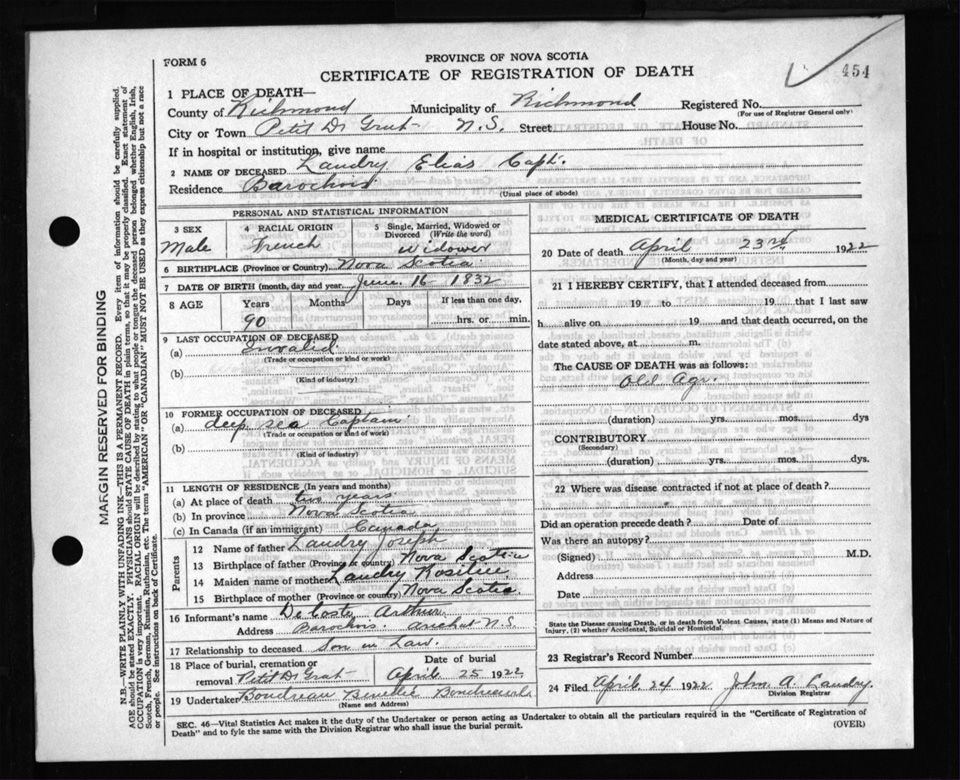 454
FORM 6
PROVINCE OF NOVA SCOTIA
CERTIFICATE OF REGISTRATION OF DEATH
1 PLACE OF DEATH—
County of Richmond Municipality of Richmond Registered No.
(For use of Registrar General only)
City or Town Petit D Grat N.S. Street House No.
If in hospital or institution, give name
2 NAME OF DECEASED Landry Elias Capt.
Residence Barochois.
(Usual place of abode)
PERSONAL AND STATISTICAL INFORMATION
3 SEX Male
4 RACIAL ORIGIN French
5 Single, Married, Widowed or Divorced (Write the word) widower
6 BIRTHPLACE (Province or Country) Nova Scotia
7 DATE OF BIRTH (month, day and year) June 16 1832
8 AGE Years Months Days If less than one day,
90 hrs. or min.
9 LAST OCCUPATION OF DECEASED
(a) Invalid
(Trade or occupation or kind or work)
(b)
(Kind of industry)
10 FORMER OCCUPATION OF DECEASED
(a) deep sea Captain
(Trade or occupation or kind of work)
(b)
(Kind of industry)
11 LENGTH OF RESIDENCE (In years and months)
(a) At place of death years
(b) In province Nova Scotia
(c) In Canada (if an immigrant) Canada
Parents
12 Name of father Landry Joseph
13 Birthplace of father (Province or country) Nova Scotia
14 Maiden name of mother Landry
15 Birthplace of mother (Province or country) Nova Scotia
16 Informant's name DeCoste Arthur
Address Barochois. Arichat N.S.
17 Relationship to deceased Son in Law.
18 Place of burial, cremation or removal Petit D Grat
Date of burial April 25 1922
19 Undertaker Boudreau
(Name and Address)
MEDICAL CERTIFICATE OF DEATH
20 Date of death April 23rd 1922
(Month, day and year)
21 I HEREBY CERTIFY, that I attended deceased from
19 to 19 that I last saw
h alive on 19 and that death occurred, on the
date stated above, at m.
The CAUSE OF DEATH was as follows:
Old Age.
(duration) yrs. mos. dys
CONTRIBUTORY
(Secondary)
(duration) yrs. mos. dys.
22 Where was disease contracted if not at place of death?
Did an operation precede death? Date of
Was there an autopsy?
(Signed) M.D.
Address
Date
State the Disease causing Death, or in death from Violent Causes, state (1) Means and Nature of
Injury, (2) whether Accidental, Suicidal or Homicidal.
23 Registrar's Record Number
24 Filed April 24 1922 John A. Landry.
Division Registrar
SEC. 46—Vital Statistics Act makes it the duty of the Undertaker or person acting as Undertaker to obtain all the particulars required in the "Certificate of Registration of
Death" and to fyle the same with the Division Registrar who shall issue the burial permit. (OVER)
MARGIN RESERVED FOR BINDING
N.B.—WRITE PLAINLY WITH UNFADING INK—THIS IS A PERMANENT RECORD. Every item of information should be carefully supplied.
AGE should be stated EXACTLY. PHYSICIANS should STATE CAUSE OF DEATH in plain terms, so that it may be properly classified. Exact statement of
OCCUPATION is very important. RACIAL ORIGIN will be described by stating to what people or tongue the deceased person belonged whether English, Irish,
Scotch, French, German, Russian, Ruthenian, etc. The terms "AMERICAN" OR "CANADIAN" MUST NOT BE USED as they express citizenship but not a race
or people. See instructions on back of Certificate.